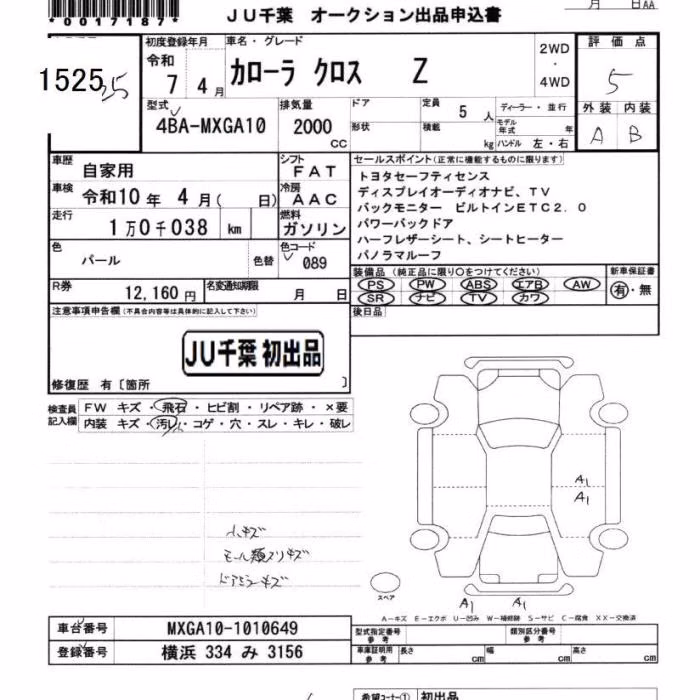 *0017187*
JU千葉 オークション出品申込書
月 日AA
1525
25
初度登録年月
令和
7 4月
車名・グレード
カローラ クロス Z
2WD
・
4WD
評価点
5
外装 内装
A B
型式
4BA-MXGA10
排気量
2000
CC
ドア
形状
定員
5 人
積載
kg
ディーラー・並行
モデル年式 年
ハンドル 左・右
車歴
自家用
シフト
FAT
車検
令和10年 4月( 日)
冷房
AAC
走行
1万0千038 km
燃料
ガソリン
色
パール
色替
色コード
089
R券
12,160円
名変通知期限
月 日
セールスポイント(正常に機能するものに限ります)
トヨタセーフティセンス
ディスプレイオーディオナビ、TV
バックモニター ビルトインETC2.0
パワーバックドア
ハーフレザーシート、シートヒーター
パノラマルーフ
装備品(純正品に限り○をつけてください)
PS PW ABS エアB AW
SR ナビ TV カワ
新車保証書
有・無
後日品
注意事項申告欄(不具合内容等は具体的に記入して下さい)
JU千葉 初出品
修復歴 有〔箇所 〕
検査員
記入欄
FW キズ・飛石・ヒビ割・リペア跡・×要
内装 キズ・汚れ・コゲ・穴・スレ・キレ・破レ
小キズ
モール類スリキズ
ドアミラーキズ
A1
A1
スペア
A1 A1
A-キズ E-エクボ U-凹み W-補修跡 S-サビ C-腐食 XX-交換済
車台番号
MXGA10-1010649
登録番号
横浜 334 み 3156
型式指定番号
参考
類別区分番号
参考
車庫証明用
参考
長さ cm
幅 cm
高さ cm
希望コーナー① 初出品